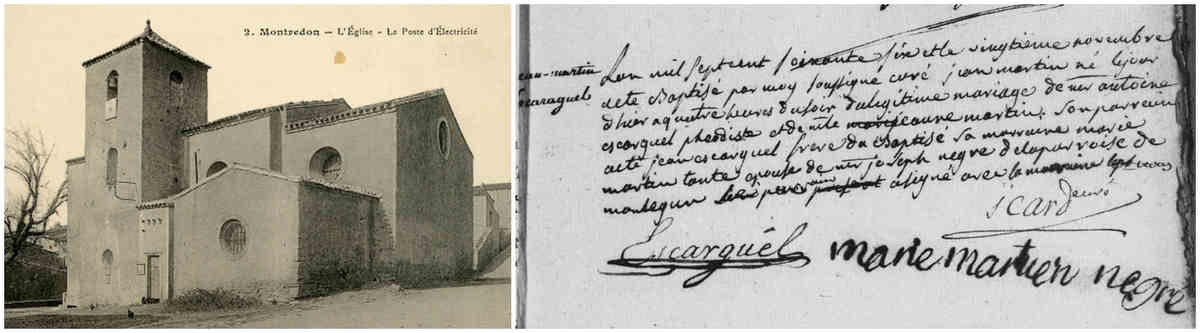 2. Montredon — L'Église - Le Poste d'Électricité
jean-martin
escaraguel
Lan mil sept cent soixante six et le vingtieme novembre
a ete Baptisé par moy soussigné curé jean martin né le jour
d'hier a quatre heures du soir du legitime mariage de mr antoine
escarguel et de jeanne martin. son parrein
a eté jean escarguel frere du Baptisé sa marraine marie
martin tante epouse de mr joseph negre de la parroise de
montegun a signé avec la
icard curé
Escarguél
marie martien negre